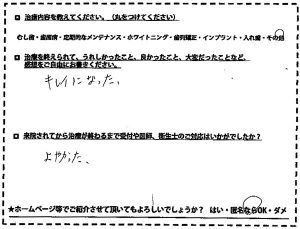 □ 治療内容を教えてください。（丸をつけてください）
むし歯・歯周病・定期的なメンテナンス・ホワイトニング・歯列矯正・インプラント・入れ歯・その他
□ 治療を終えられて、うれしかったこと、良かったこと、大変だったことなど、
感想をご自由にお書きください。
キレイになった。
□ 来院されてから治療が終わるまで受付や医師、衛生士のご対応はいかがでしたか？
よかった、
★ホームページ等でご紹介させて頂いてもよろしいでしょうか？ はい・匿名ならOK・ダメ